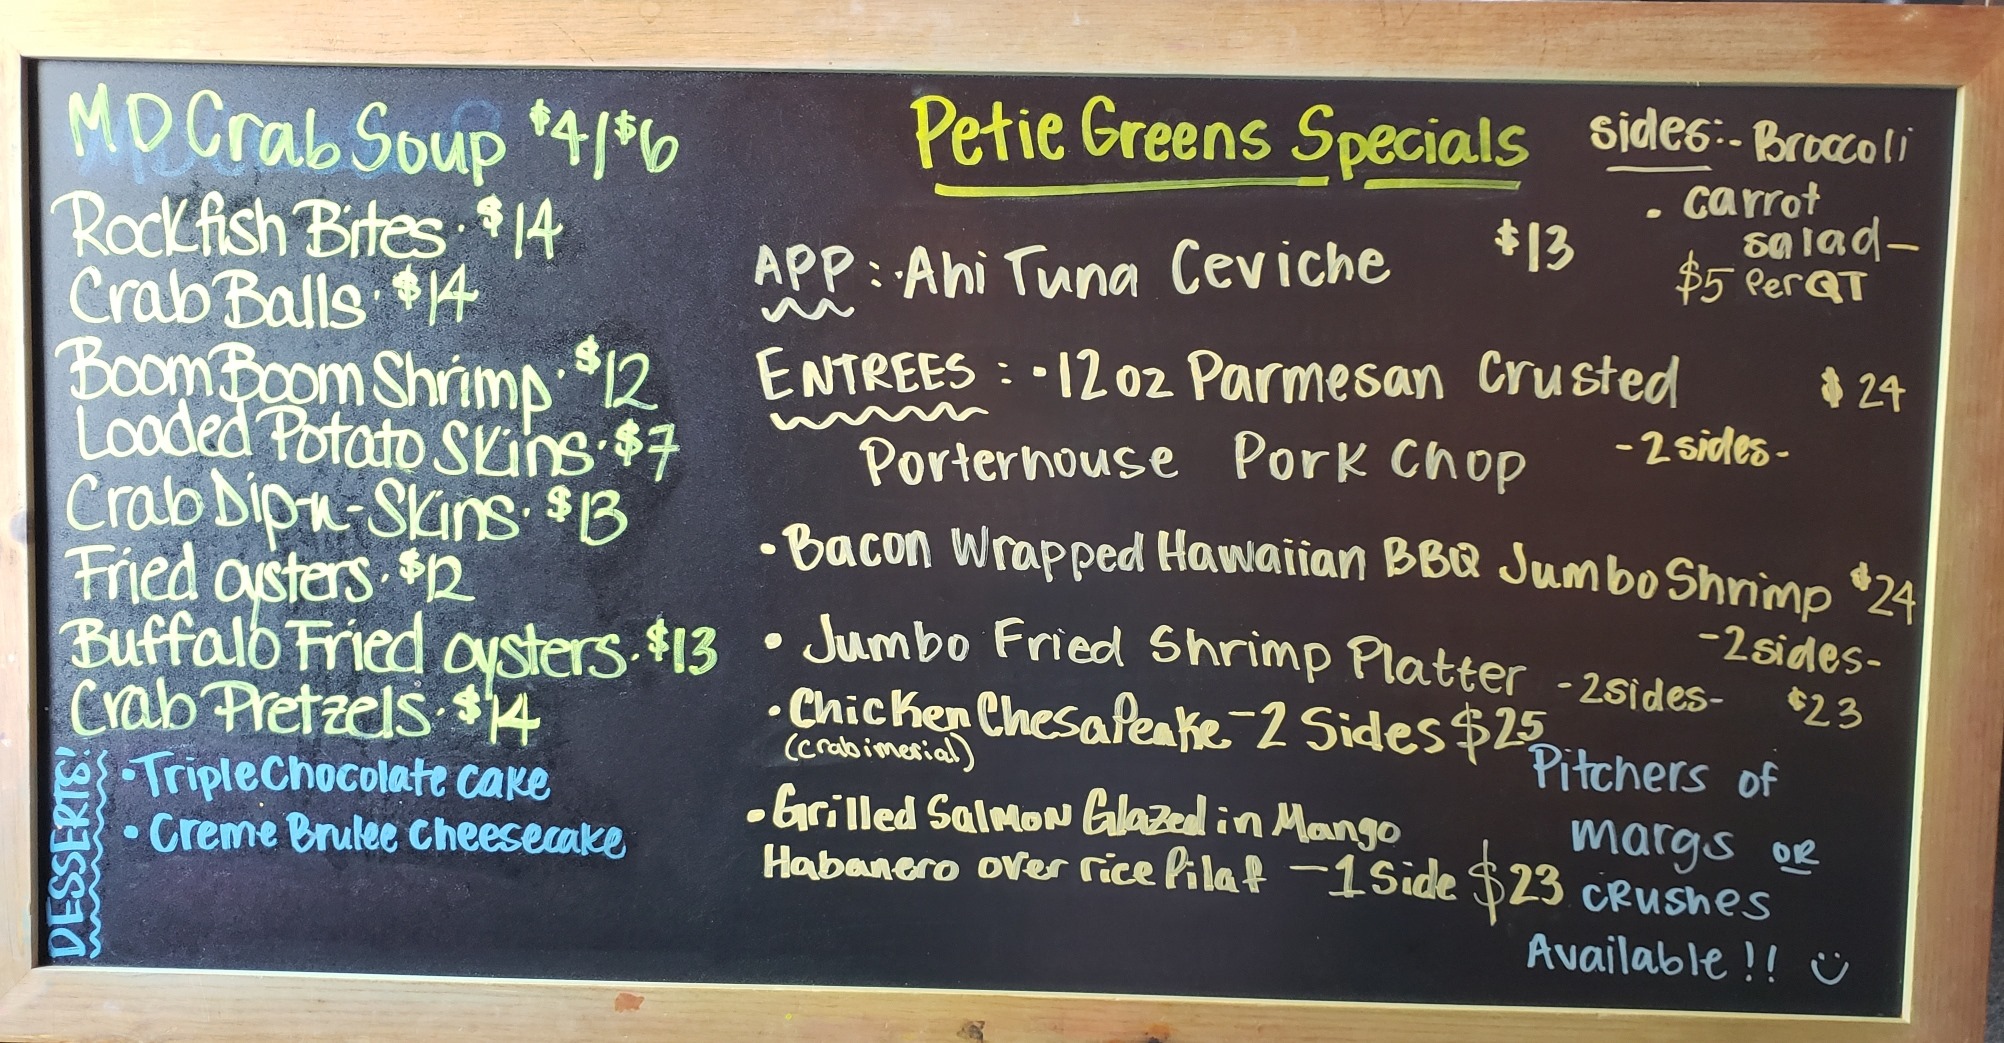 MD Crab Soup $4/$6
Rockfish Bites. $14
Crab Balls. $14
Boom Boom Shrimp. $12
Loaded Potato Skins. $7
Crab Dip-n-Skins. $13
Fried oysters. $12
Buffalo Fried oysters. $13
Crab Pretzels. $14
DESSERTS:
• Triple Chocolate cake
• Creme Brulee cheesecake
Petie Greens Specials
APP: · Ahi Tuna Ceviche $13
ENTREES: · 12oz Parmesan Crusted $24
Porterhouse Pork Chop -2 sides-
• Bacon Wrapped Hawaiian BBQ Jumbo Shrimp $24
-2sides-
• Jumbo Fried Shrimp Platter -2sides- $23
• Chicken Chesapeake -2 Sides $25
(crab imerial)
• Grilled Salmon Glazed in Mango
Habanero over rice Pilaf -1 Side $23
sides: - Broccoli
• carrot
salad-
$5 Per QT
Pitchers of
margs OR
cRushes
Available!!